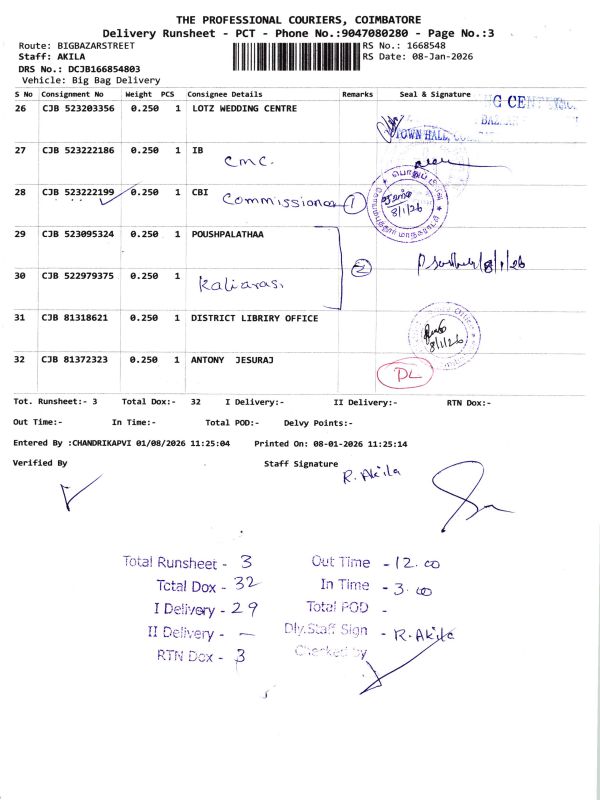 THE PROFESSIONAL COURIERS, COIMBATORE
Delivery Runsheet - PCT - Phone No.:9047080280 - Page No.:3
Route: BIGBAZARSTREET RS No.: 1668548
Staff: AKILA RS Date: 08-Jan-2026
DRS No.: DCJB166854803
Vehicle: Big Bag Delivery
S No Consignment No Weight PCS Consignee Details Remarks Seal & Signature
26 CJB 523203356 0.250 1 LOTZ WEDDING CENTRE
TOWN HALL,
27 CJB 523222186 0.250 1 IB
cmc.
28 CJB 523222199 0.250 1 CBI
Commissioner 1
8/1/26
29 CJB 523095324 0.250 1 POUSHPALATHAA
2 8/1/26
30 CJB 522979375 0.250 1
Kaliarasi
31 CJB 81318621 0.250 1 DISTRICT LIBRIRY OFFICE
8/1/26
32 CJB 81372323 0.250 1 ANTONY JESURAJ
DL
Tot. Runsheet:- 3 Total Dox:- 32 I Delivery:- II Delivery:- RTN Dox:-
Out Time:- In Time:- Total POD:- Delvy Points:-
Entered By :CHANDRIKAPVI 01/08/2026 11:25:04 Printed On: 08-01-2026 11:25:14
Verified By Staff Signature
R. Akila
Total Runsheet - 3 Out Time - 12.00
Total Dox - 32 In Time - 3.00
I Delivery - 29 Total POD -
II Delivery - — Dly.Staff Sign - R. Akila
RTN Dox - 3 Checked by